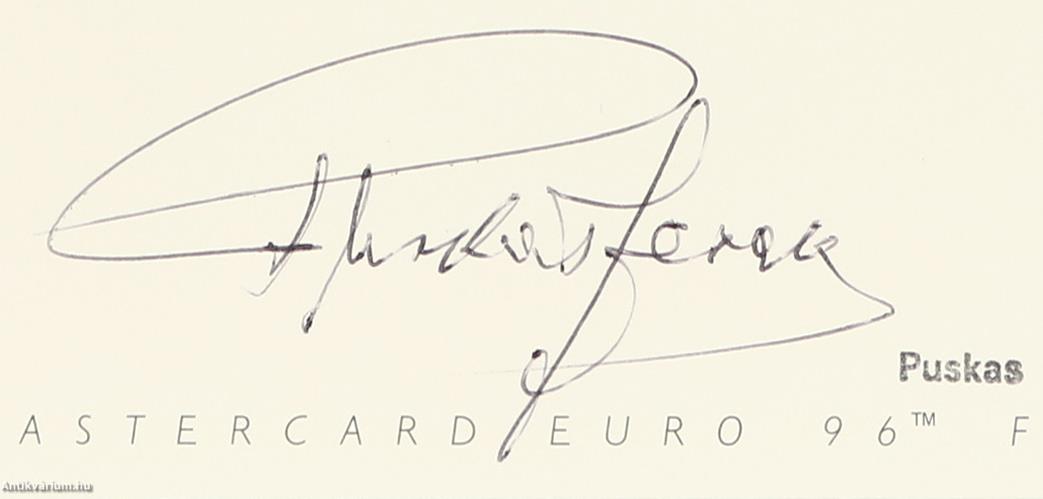 Puskás Ferenc
Puskas
ASTERCARD EURO 96™ F
Antikvárium.hu